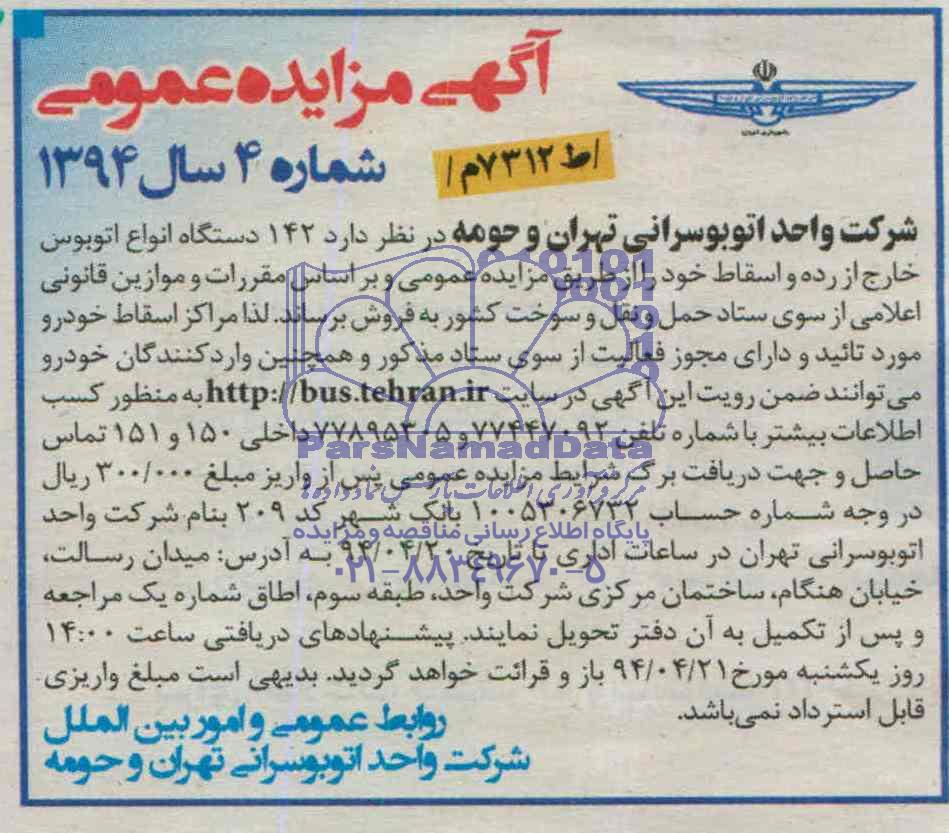 آگهی مزایده عمومی
شماره ۴ سال ۱۳۹۴
/ط ۷۳۱۲م/
شرکت واحد اتوبوسرانی تهران و حومه در نظر دارد ۱۴۲ دستگاه انواع اتوبوس
خارج از رده و اسقاط خود را از طریق مزایده عمومی و بر اساس مقررات و موازین قانونی
اعلامی از سوی ستاد حمل و نقل و سوخت کشور به فروش برساند. لذا مراکز اسقاط خودرو
مورد تائید و دارای مجوز فعالیت از سوی ستاد مذکور و همچنین وارد کنندگان خودرو
می توانند ضمن رویت این آگهی در سایت http://bus.tehran.ir به منظور کسب
اطلاعات بیشتر با شماره تلفن ۷۷۴۴۷۰۹۲ و ۷۷۸۹۵۳۰۵ داخلی ۱۵۰ و ۱۵۱ تماس
حاصل و جهت دریافت برگ شرایط مزایده عمومی پس از واریز مبلغ ۳۰۰/۰۰۰ ریال
در وجه شماره حساب ۱۰۰۵۳۰۶۷۳۲ بانک شهر کد ۲۰۹ بنام شرکت واحد
اتوبوسرانی تهران در ساعات اداری تا تاریخ ۹۴/۰۴/۲۰ به آدرس: میدان رسالت،
خیابان هنگام، ساختمان مرکزی شرکت واحد، طبقه سوم، اطاق شماره یک مراجعه
و پس از تکمیل به آن دفتر تحویل نمایند. پیشنهادهای دریافتی ساعت ۱۴:۰۰
روز یکشنبه مورخ ۹۴/۰۴/۲۱ باز و قرائت خواهد گردید. بدیهی است مبلغ واریزی
قابل استرداد نمی باشد.
روابط عمومی و امور بین الملل
شرکت واحد اتوبوسرانی تهران و حومه
ParsNamadData
مرکز فرآوری اطلاعات پارس نماد داده ها
پایگاه اطلاع رسانی مناقصه و مزایده
۰۲۱-۸۸۳۴۹۶۷۰-۵